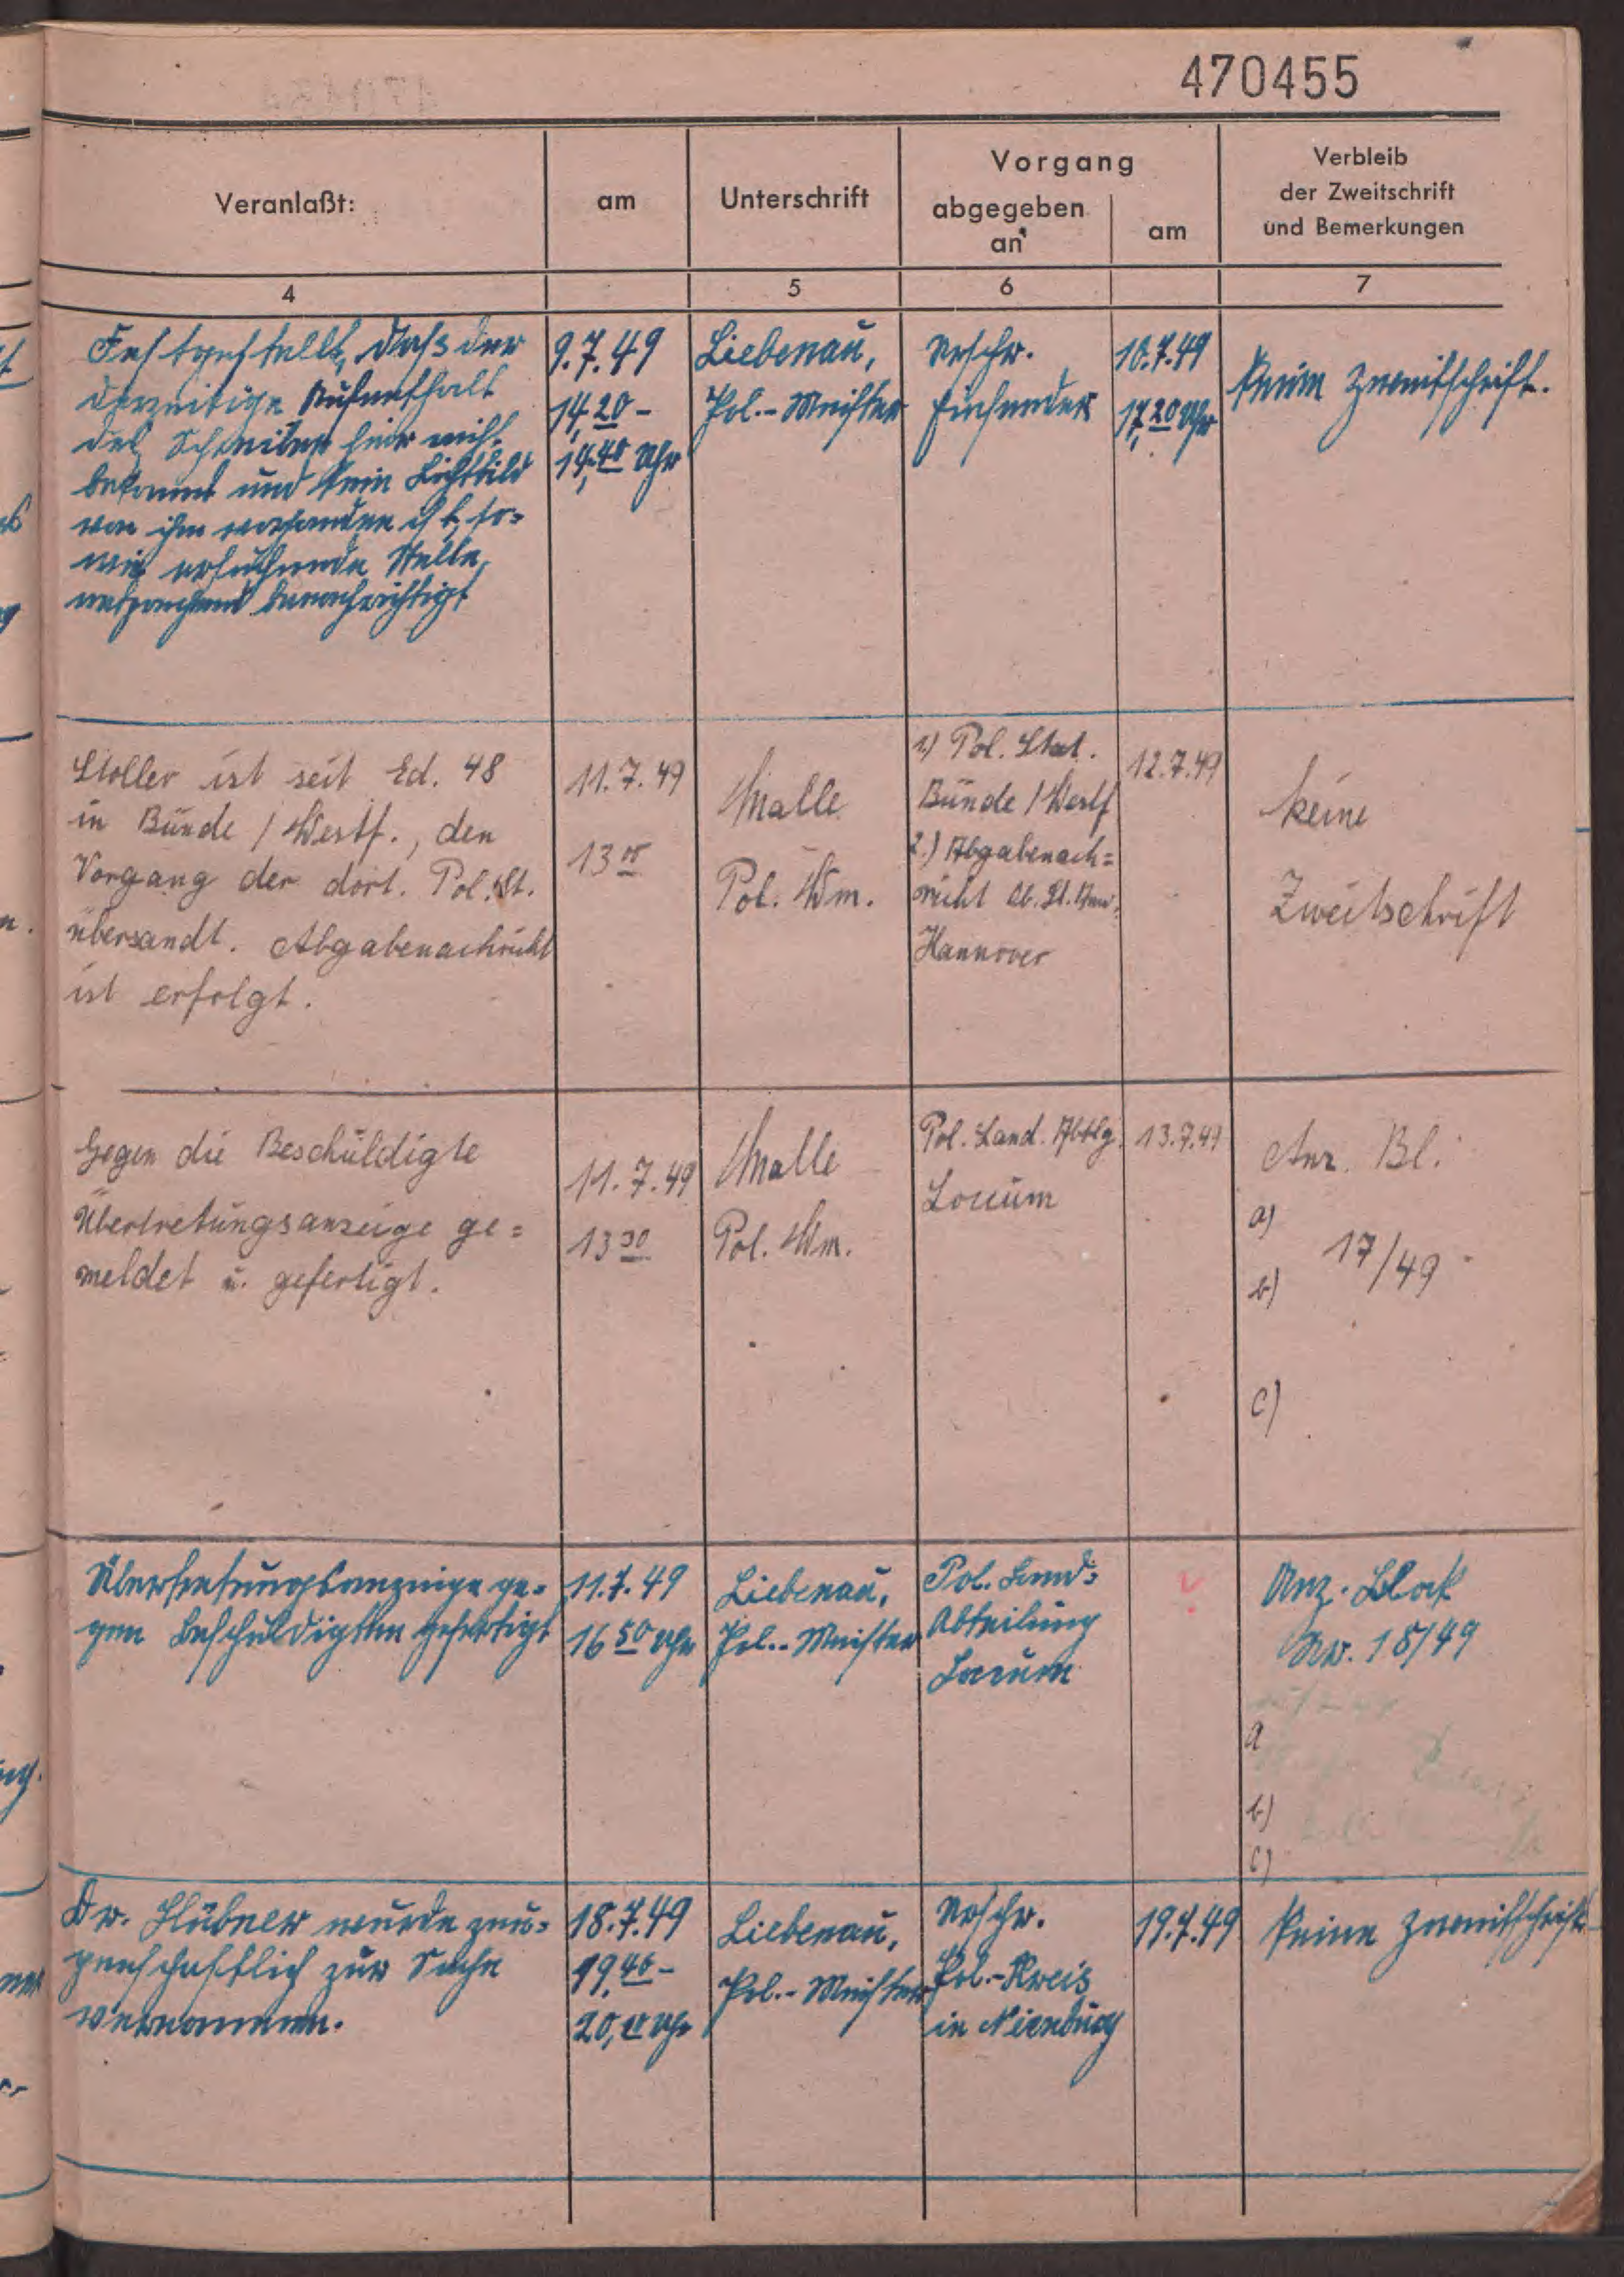 470455
Veranlaßt:
am
Unterschrift
Vorgang
abgegeben
an
am
Verbleib
der Zweitschrift
und Bemerkungen
4
5
6
7
Festgestellt, daß der
derzeitige Aufenthalt
des hier nicht
bekannt und kein Lichtbild
von ihm vorhanden ist, so-
wie ersuchende Stelle
entsprechend benachrichtigt
9.7.49
14,20 -
14,40 Uhr
Liebenau,
Pol.-Meister
Urschr.
Einsender
10.7.49
17,20 Uhr
Keine Zweitschrift.
Stoller ist seit Ed. 48
in Bünde / Westf., den
Vorgang der dort. Pol. St.
übersandt. Abgabenachricht
ist erfolgt.
11.7.49
13 00
Malle
Pol. Wm.
1) Pol. Stat.
Bünde / Westf
2.) Abgabenach=
richt Ob. St. Anw.
Hannover
12.7.49
keine
Zweitschrift
Gegen die Beschuldigte
Übertretungsanzeige ge=
meldet u. gefertigt.
11.7.49
13 30
Malle
Pol. Wm.
Pol. Land. Abtlg.
Loccum
13.7.49
Anz. Bl.
a)
17/49
b)
c)
Übertretungsanzeige ge-
gen Beschuldigten gefertigt
11.7.49
16 50 Uhr
Liebenau,
Pol.-Meister
Pol. Land-
Abteilung
Loccum
Anz. Block
Nr. 18/49
a
b)
c)
Dr. Hübner wurde zeu-
genschaftlich zur Sache
vernommen.
18.7.49
19,40 -
20,00 Uhr
Liebenau,
Pol.-Meister
Urschr.
Pol.-Kreis
in Nienburg
19.7.49
Keine Zweitschrift